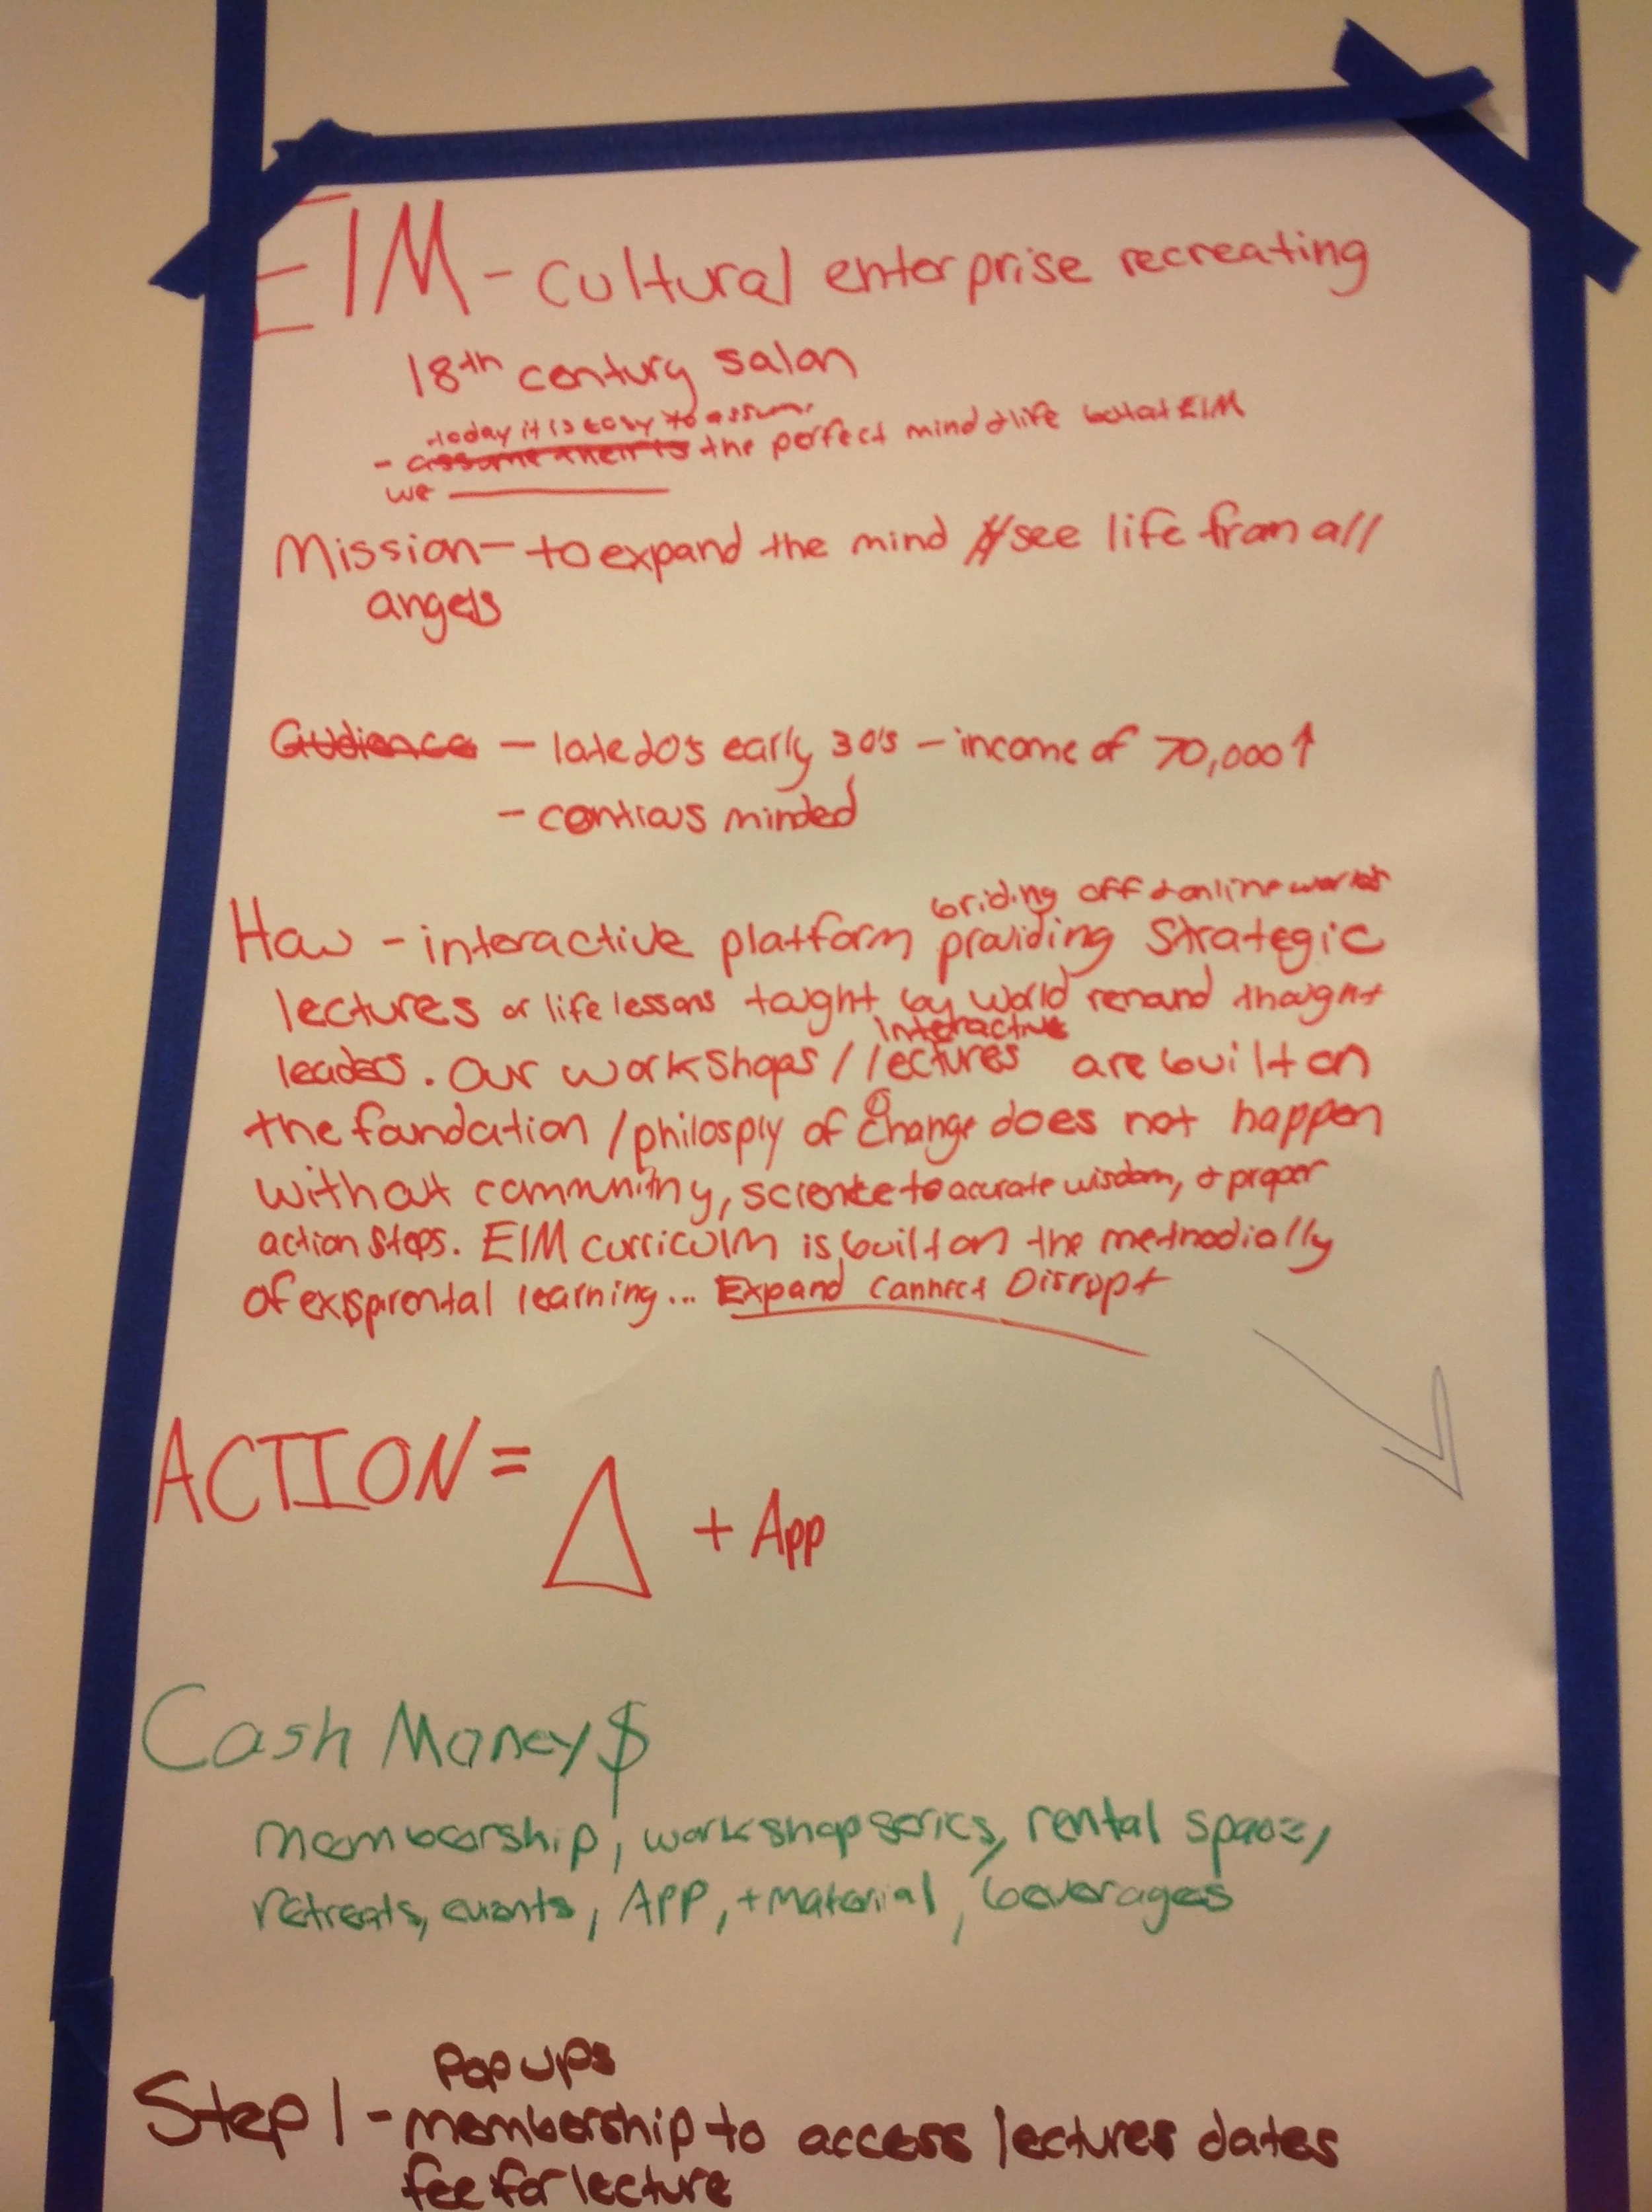 EIM - cultural enterprise recreating
18th century salon
today it is easy to assume
- the perfect mind & life but at EIM
we
Mission - to expand the mind // see life from all
angels
Audience - late 20's early 30's - income of 70,000↑
- contious minded
briding off & online worlds
How - interactive platform providing strategic
lectures or life lessons taught by world renound thought
interactive
leaders. Our workshops / lectures are built on
the foundation / philosply of change does not happen
without community, science to accurate wisdom, & proper
action steps. EIM curriculm is built on the methodially
of learning... Expand Connect Disrupt
ACTION = △ + App
Cash Money $
membership, workshop series, rental space,
retreats, events, APP, + material, beverages
Pop ups
Step 1 - membership to access lectures dates
fee for lecture